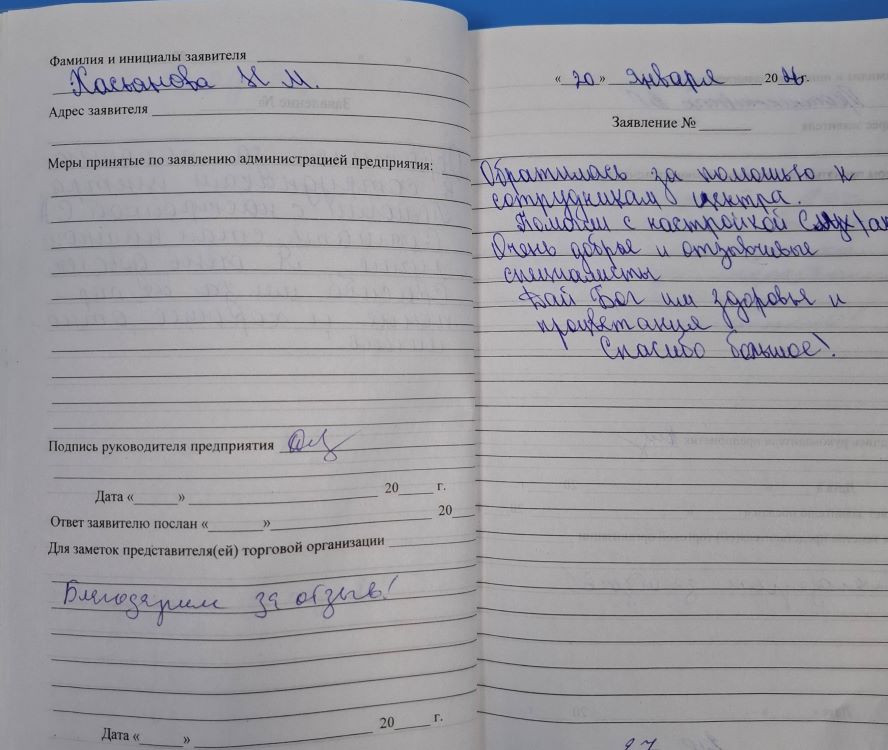 Фамилия и инициалы заявителя
Касьянова Н М.
Адрес заявителя
Меры принятые по заявлению администрацией предприятия:
Подпись руководителя предприятия
Дата « » 20 г.
Ответ заявителю послан « » 20
Для заметок представителя(ей) торговой организации
Благодарим за отзыв!
Дата « » 20 г.
« 20 » января 20 г.
Заявление №
Обратилась за помощью к
сотрудникам центра.
Помогли с настройкой
Очень добрые и отзывчивые
специалисты
Дай Бог им здоровья и
процветания
Спасибо большое!
27